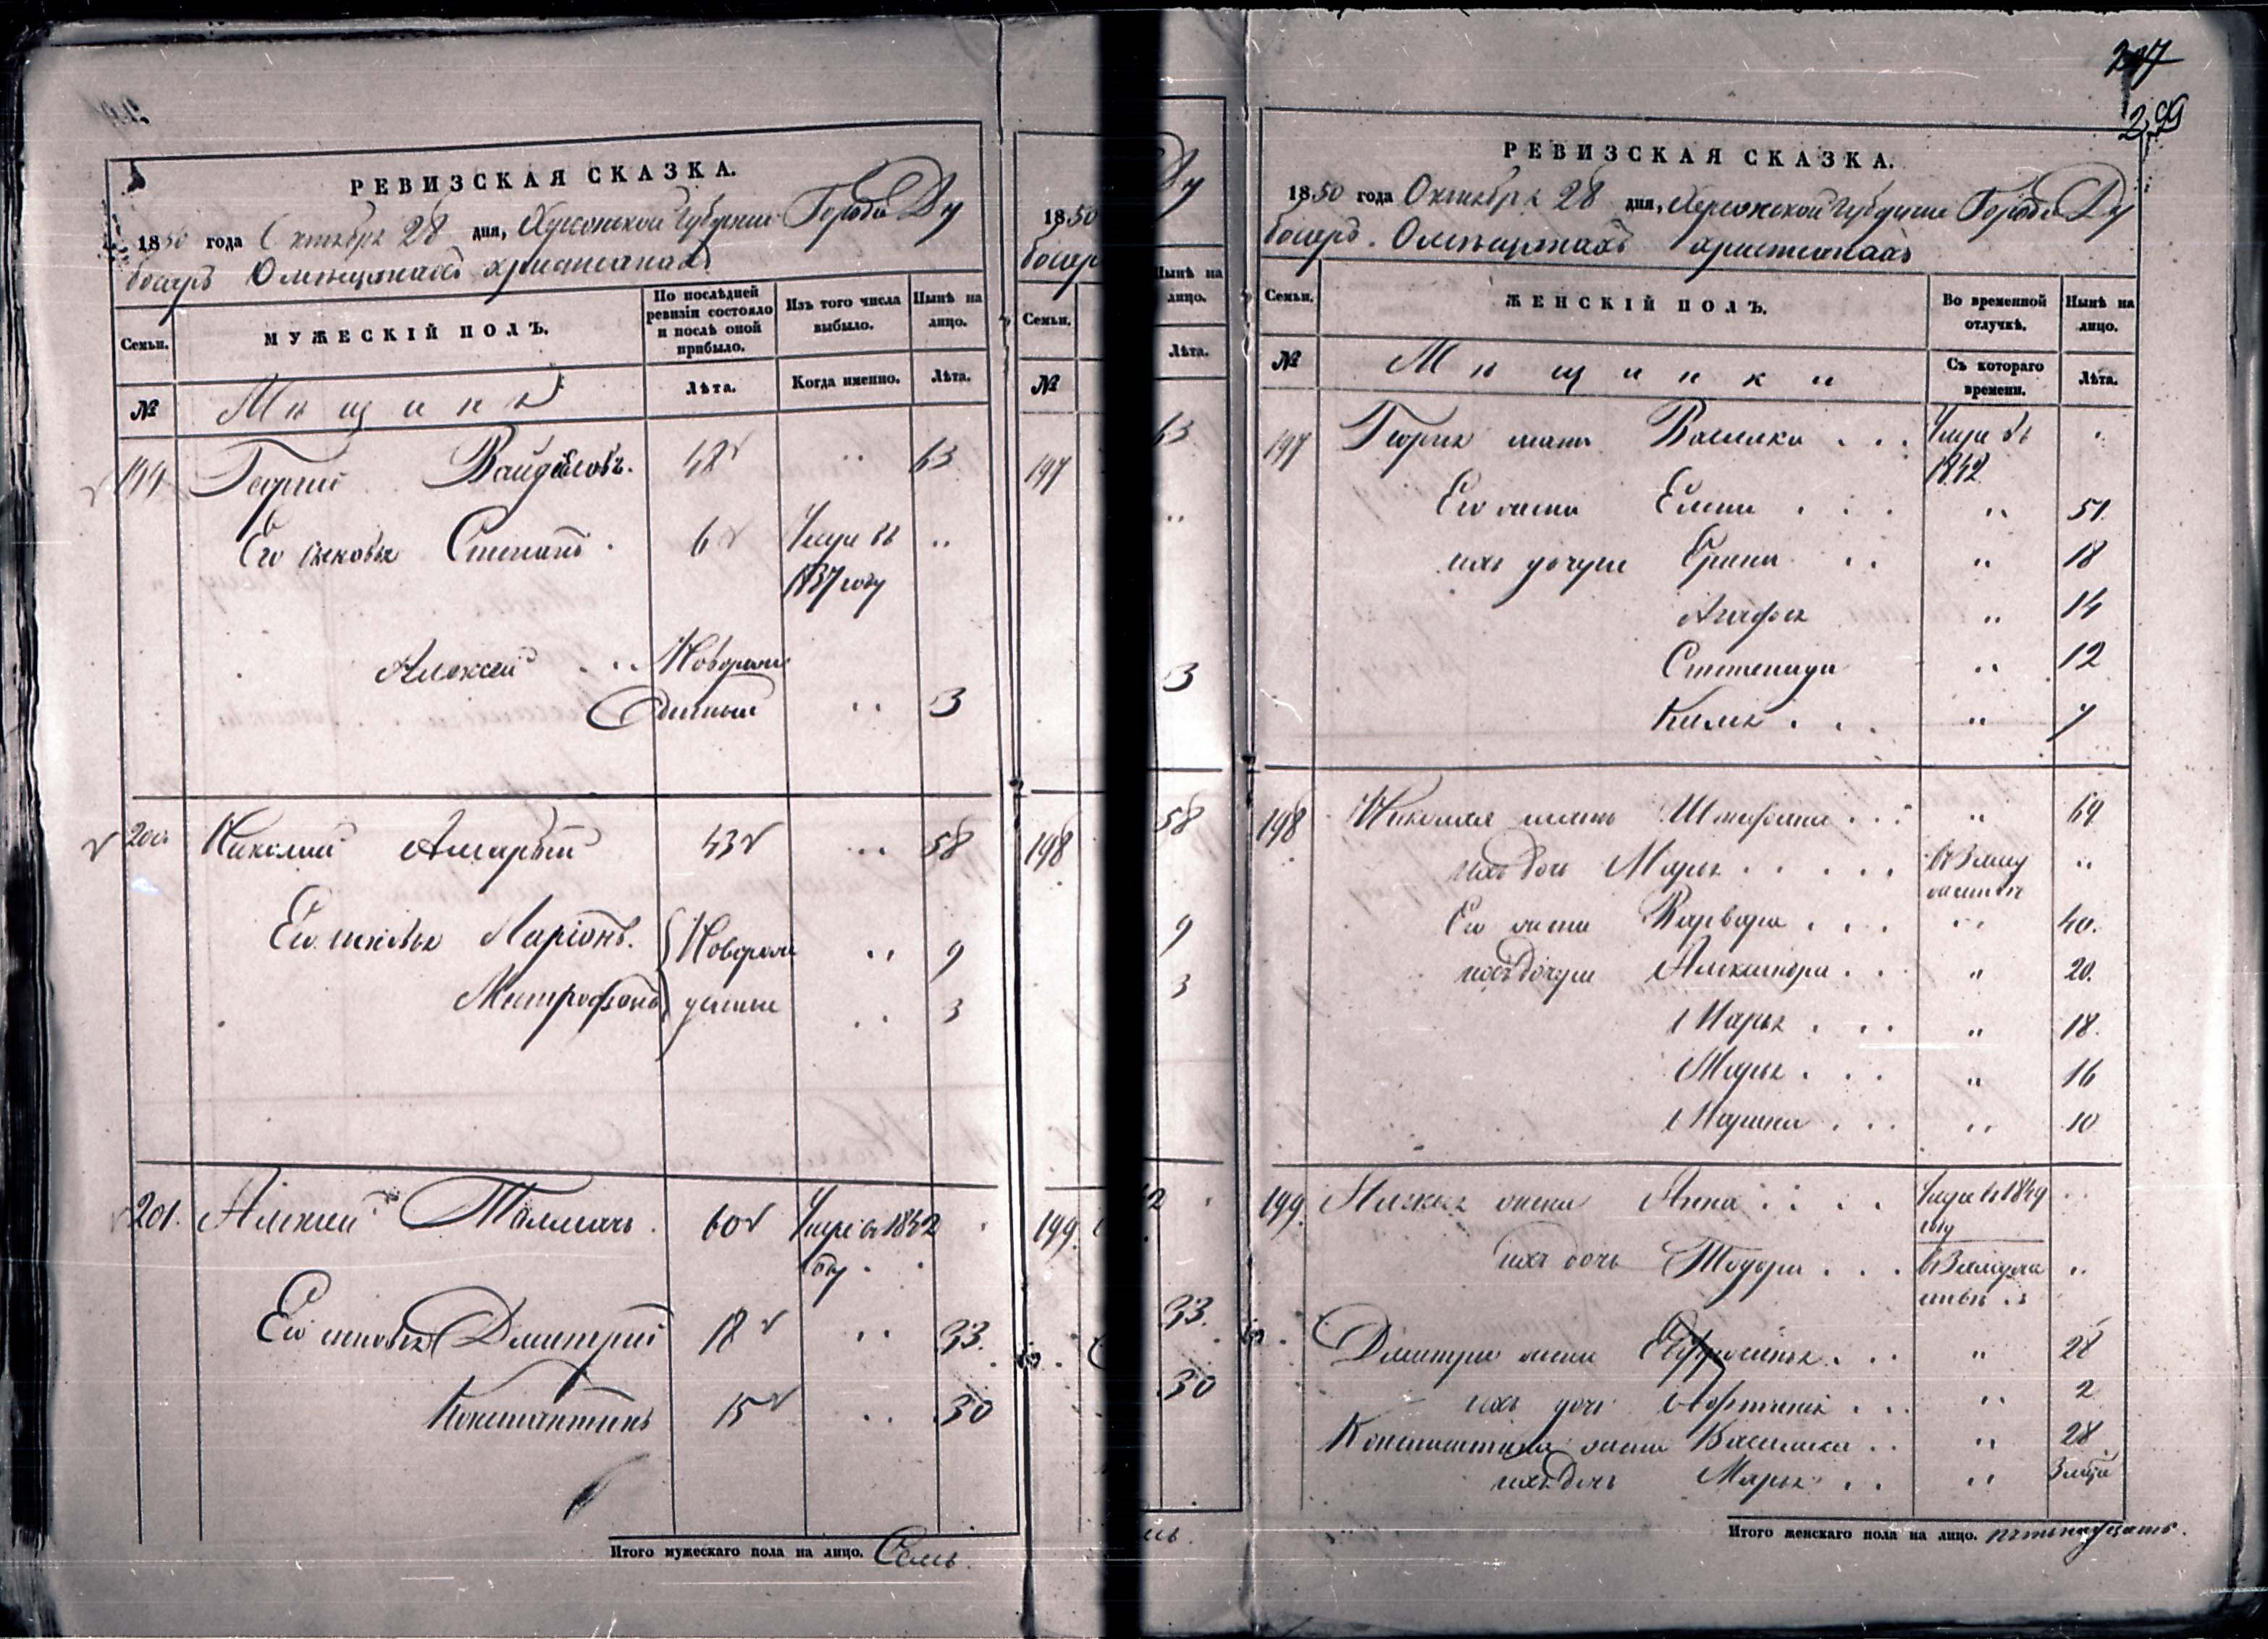 РЕВИЗСКАЯ СКАЗКА.
1850 года Октября 28 дня, Херсонской Губернии Города Ду
босаръ О мѣщанахъ христианахъ
Семьи.
МУЖЕСКІЙ ПОЛЪ.
По послѣдней ревизіи состояло и послѣ оной прибыло.
Изъ того числа выбыло.
Нынѣ на лицо.
№
Мѣщане
Лѣта.
Когда именно.
Лѣта.
Георгий 48 " 63
Его сыновья Степанъ 6 Умре въ "
1837 году
Алексей Новорож
денный " 3
200 Николай 43 " 58
Его сыновья Ларіонъ. Новорож " 9
Митрофанъ денные " 3
201. Алексей Талмачъ. 60 Умре въ 1842
году
Его сыновья Дмитрий 18 " 33.
Константинъ 15 " 30
Итого мужескаго пола на лицо. Семь.
1850
босар
Семьи.
№
197
198
199.
Ду
Нынѣ на
лицо.
Лѣта.
63
"
3
58
9
3
33.
30
297
299
РЕВИЗСКАЯ СКАЗКА.
1850 года Октября 28 дня, Херсонской Губернии Города Ду
босаръ. О мѣщанахъ христианахъ
Семьи.
ЖЕНСКІЙ ПОЛЪ.
Во временной отлучкѣ.
Нынѣ на лицо.
№
Мѣщанки
Съ котораго времени.
Лѣта.
197 Георгия жена Василика Умре въ "
1842
Его жена Елена " 51.
ихъ дочери Ерина " 18
Агафья " 14
Степанида " 12
" 7
198 Николая " 69
ихъ дочь Марья въ Заму "
жествѣ
Его жена Варвара " 40.
ихъ дочери Александра " 20.
Марья " 18.
Марья " 16
Марина " 10
199. Алексея жена Анна Умре въ 1849 "
году
ихъ дочь Тодора въ Замуже "
ствѣ
Дмитрия жена Ефросинья " 28
ихъ дочь " 2
Константина жена Василиса " 28
ихъ дочь Марья "
Итого женскаго пола на лицо. пятьнадцать.